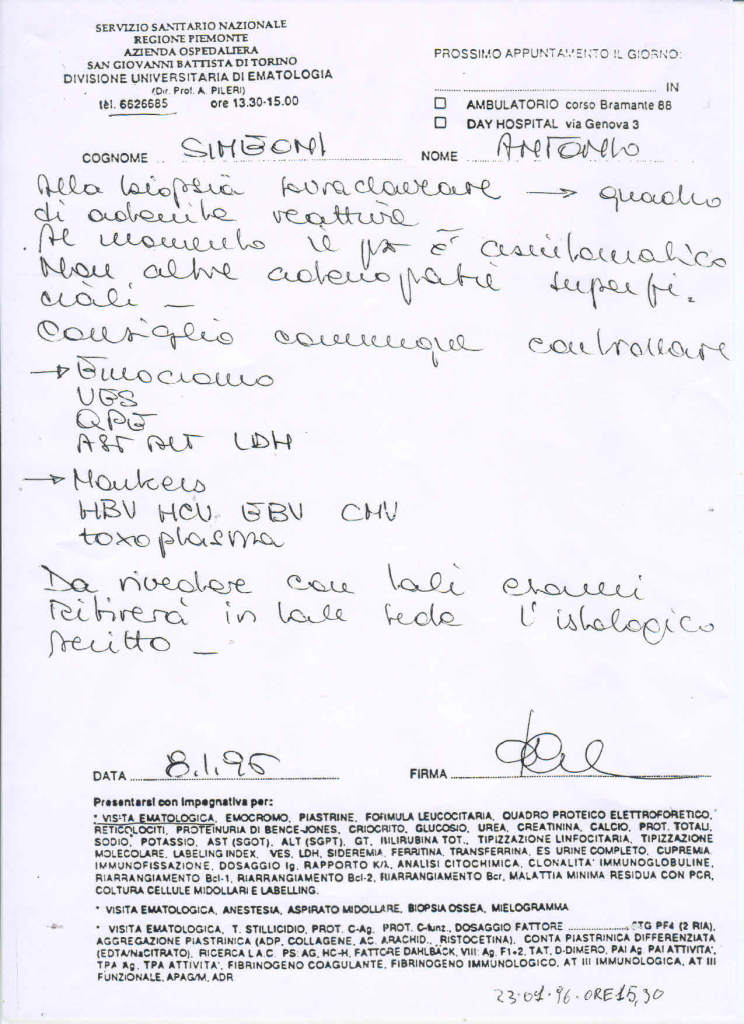 SERVIZIO SANITARIO NAZIONALE
REGIONE PIEMONTE
AZIENDA OSPEDALIERA
SAN GIOVANNI BATTISTA DI TORINO
DIVISIONE UNIVERSITARIA DI EMATOLOGIA
(Dir. Prof. A. PILERI)
tel. 6626685 ore 13.30-15.00
PROSSIMO APPUNTAMENTO IL GIORNO:
IN
AMBULATORIO corso Bramante 88
DAY HOSPITAL via Genova 3
COGNOME SIMEONI NOME ANTONIO
Alla biopsia sovraclaveare → quadro
di adenite reattiva
Al momento il pz è asintomatico
Non altre adenopatie superfi.
ciali –
Consiglio comunque controllare
→ Emocromo
VES
QPE
AST ALT LDH
→ Markers
HBV HCV EBV CMV
toxoplasma
Da rivedere con tali esami
Ritirerà in tale sede l'istologico
scritto –
DATA 8.1.96 FIRMA
Presentarsi con Impegnativa per:
* VISITA EMATOLOGICA, EMOCROMO, PIASTRINE, FORMULA LEUCOCITARIA, QUADRO PROTEICO ELETTROFORETICO,
RETICOLOCITI, PROTEINURIA DI BENCE-JONES, CRIOCRITO, GLUCOSIO, UREA, CREATININA, CALCIO, PROT. TOTALI,
SODIO, POTASSIO, AST (SGOT), ALT (SGPT), GT, BILIRUBINA TOT., TIPIZZAZIONE LINFOCITARIA, TIPIZZAZIONE
MOLECOLARE, LABELING INDEX, VES, LDH, SIDEREMIA, FERRITINA, TRANSFERRINA, ES URINE COMPLETO, CUPREMIA,
IMMUNOFISSAZIONE, DOSAGGIO Ig, RAPPORTO K/λ, ANALISI CITOCHIMICA, CLONALITA' IMMUNOGLOBULINE,
RIARRANGIAMENTO Bcl-1, RIARRANGIAMENTO Bcl-2, RIARRANGIAMENTO Bcr, MALATTIA MINIMA RESIDUA CON PCR,
COLTURA CELLULE MIDOLLARI E LABELLING.
* VISITA EMATOLOGICA, ANESTESIA, ASPIRATO MIDOLLARE, BIOPSIA OSSEA, MIELOGRAMMA
* VISITA EMATOLOGICA, T. STILLICIDIO, PROT. C-Ag, PROT. C-funz., DOSAGGIO FATTORE ............ CTG PF4 (2 RIA),
AGGREGAZIONE PIASTRINICA (ADP, COLLAGENE, AC. ARACHID., RISTOCETINA), CONTA PIASTRINICA DIFFERENZIATA
(EDTA/NaCITRATO), RICERCA L.A.C. PS: AG, HC-H, FATTORE DAHLBACK, VIII: Ag, F1+2, TAT, D-DIMERO, PAI Ag, PAI ATTIVITA',
TPA Ag, TPA ATTIVITA', FIBRINOGENO COAGULANTE, FIBRINOGENO IMMUNOLOGICO, AT III IMMUNOLOGICA, AT III
FUNZIONALE, APAG/M, ADR
23·01·96·ORE 15,30